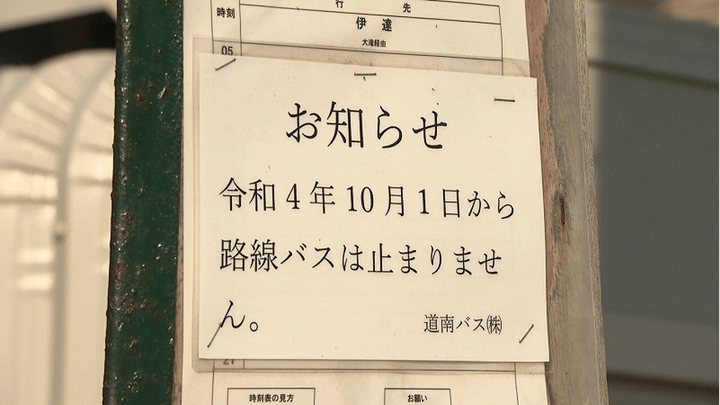 時刻
行先
伊達
大滝経由
05
お知らせ
令和4年10月1日から
路線バスは止まりませ
ん。
道南バス㈱
21
時刻表の見方
お願い